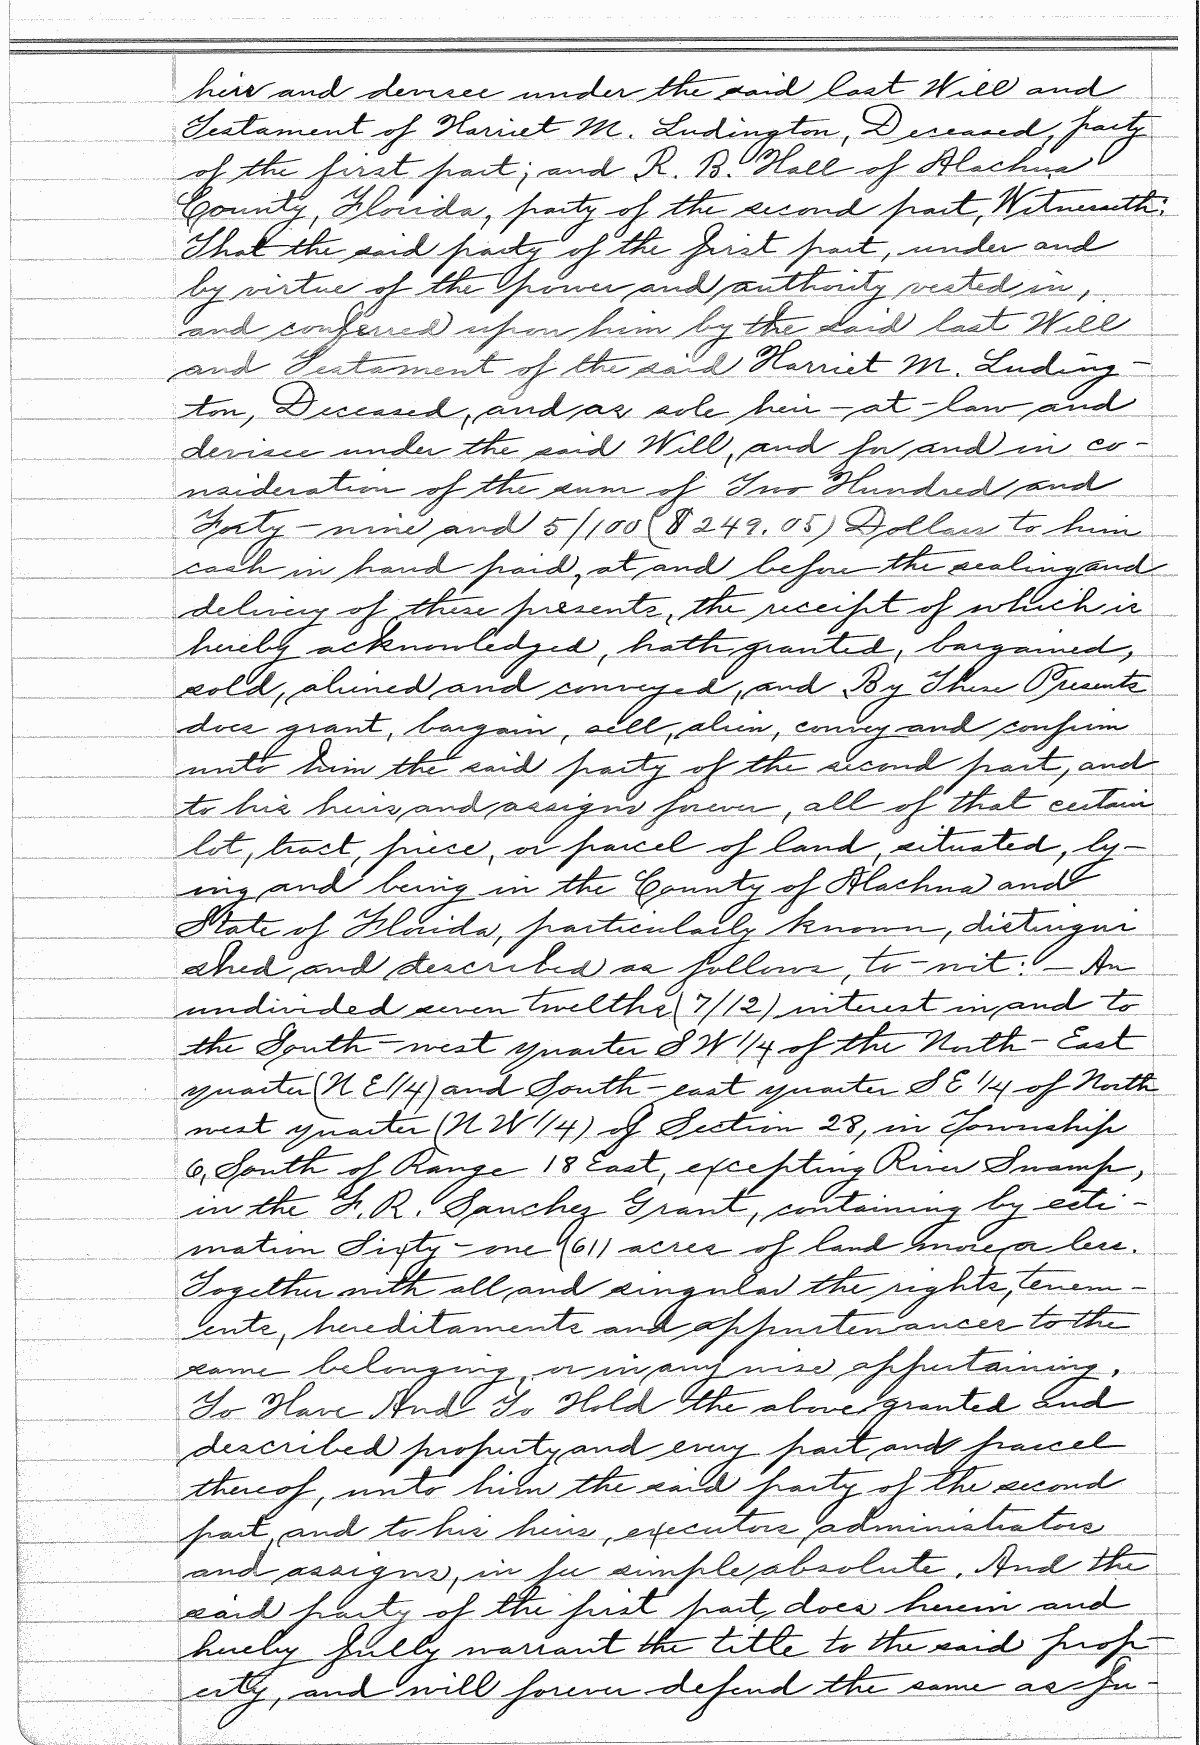 heir and devisee under the said last Will and
Testament of Harriet M. Ludington, Deceased, party
of the first part; and R. B. Hall of Alachua
County, Florida, party of the second part, Witnesseth:
That the said party of the first part, under and
by virtue of the power and authority vested in,
and conferred upon him by the said last Will
and Testament of the said Harriet M. Luding-
ton, Deceased, and as sole heir-at-law and
devisee under the said Will, and for and in co-
nsideration of the sum of Two Hundred and
Forty-nine and 5/100 ($249.05) Dollars to him
cash in hand paid, at and before the sealing and
delivery of these presents, the receipt of which is
hereby acknowledged, hath granted, bargained,
sold, aliened and conveyed, and By These Presents
does grant, bargain, sell, alien, convey and confirm
unto him the said party of the second part, and
to his heirs and assigns forever, all of that certain
lot, tract, piece, or parcel of land, situated, ly-
ing and being in the County of Alachua and
State of Florida, particularly known, distingui
shed and described as follows, to-wit:- An
undivided seven twelths (7/12) interest in and to
the South-west quarter SW 1/4 of the North-East
quarter (N E 1/4) and South-east quarter SE 1/4 of North
west quarter (N W 1/4) of Section 28, in Township
6, South of Range 18 East, excepting River Swamp,
in the F. R. Sanchez Grant, containing by esti-
mation Sixty-one (61) acres of land more or less.
Together with all and singular the rights, tenem-
ents, hereditaments and appurtenances to the
same belonging, or in any wise appertaining.
To Have And To Hold the above granted and
described property and every part and parcel
thereof, unto him the said party of the second
part, and to his heirs, executors, administrators
and assigns, in fee simple absolute. And the
said party of the first part, does herein and
hereby fully warrant the title to the said prop-
erty, and will forever defend the same as fu-